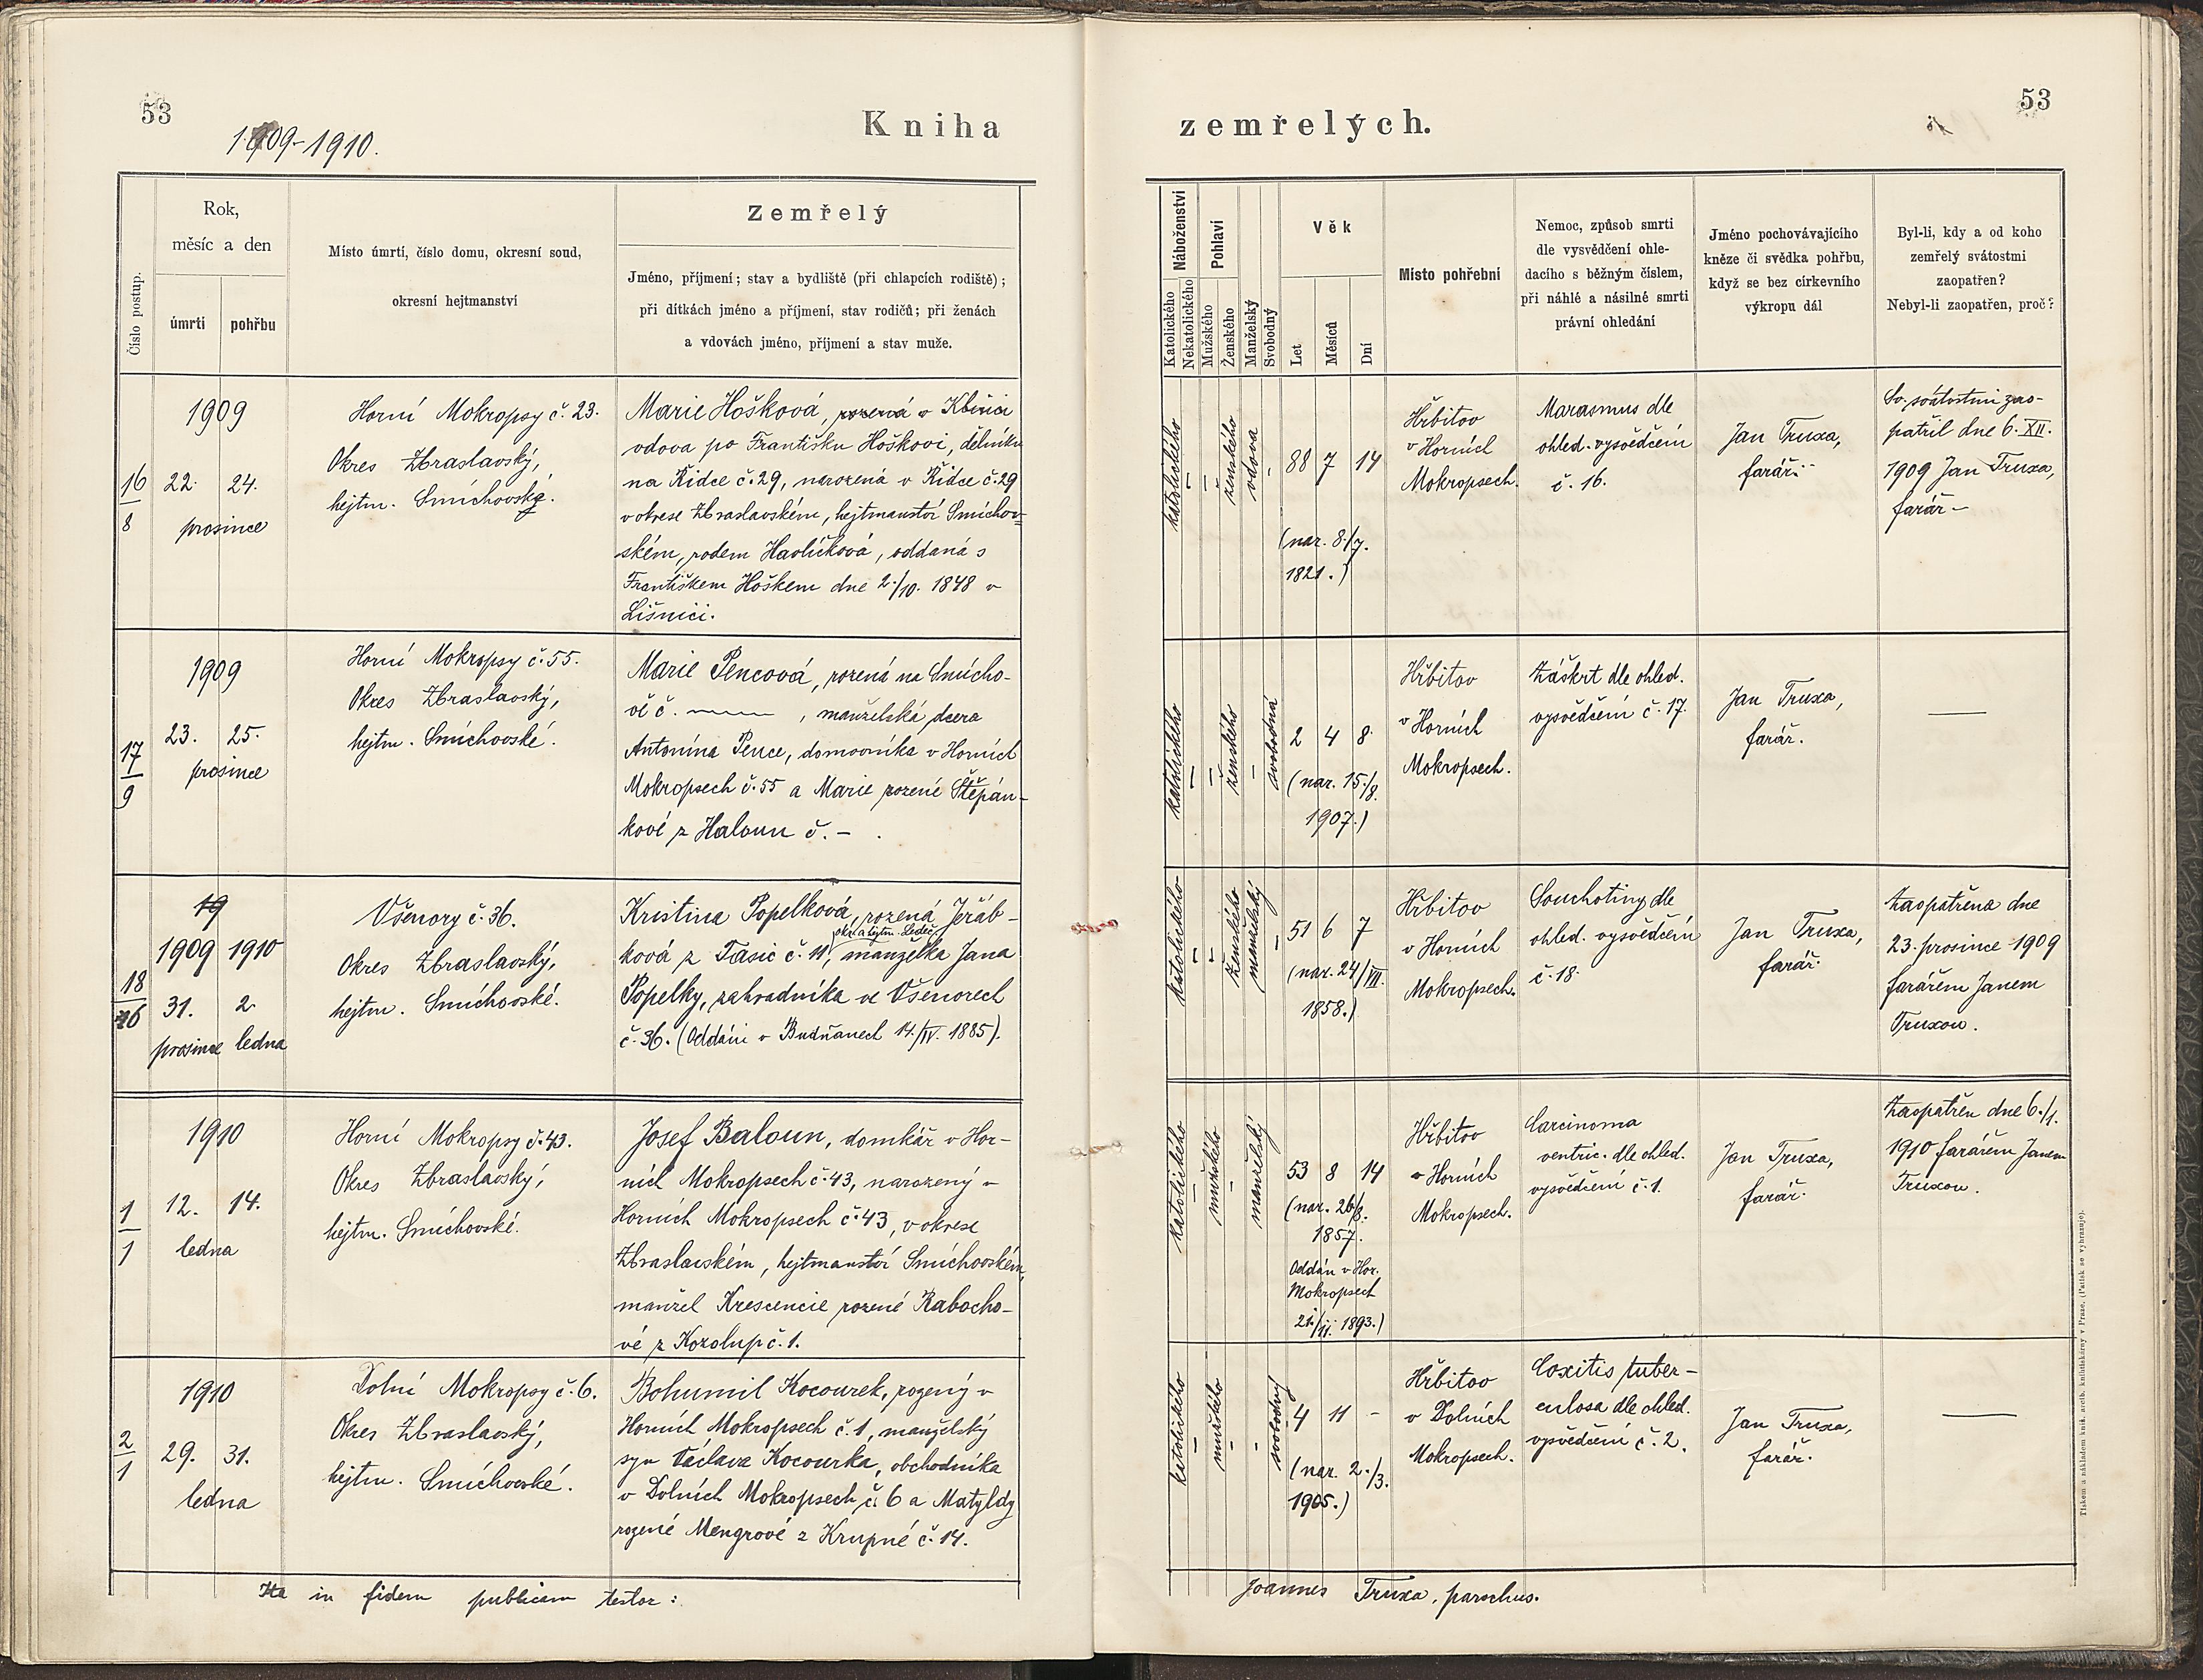 53
1909-1910.
Kniha
Číslo postup.
Rok,
měsíc a den
úmrtí
pohřbu
Místo úmrtí, číslo domu, okresní soud,
okresní hejtmanství
Zemřelý
Jméno, příjmení; stav a bydliště (při chlapcích rodiště);
při dítkách jméno a příjmení, stav rodičů; při ženách
a vdovách jméno, příjmení a stav muže.
16
8
1909
22. 24.
prosince
Horní Mokropsy č. 23.
Okres Zbraslavský,
hejtm. Smíchovské.
Marie Hošková, rozená v
vdova po Františku Hoškovi, dělníku
na Řidce č. 29, narozená v Řidce č. 29
v okrese Zbraslavském, hejtmanství Smíchov-
ském, rodem Havlíčková, oddaná s
Františkem Hoškem dne 2./10. 1848 v
Líšnici.
17
9
1909
23. 25.
prosince
Horní Mokropsy č. 55.
Okres Zbraslavský,
hejtm. Smíchovské.
Marie Pencová, rozená na Smícho-
vě č. , manželská dcera
Antonína Pence, domovníka v Horních
Mokropsech č. 55 a Marie rozené Štěpán-
kové z Haloun č. - .
18
16
19
1909 1910
31. 2.
prosince ledna
Všenory č. 36.
Okres Zbraslavský,
hejtm. Smíchovské.
Kristina Popelková, rozená Jeřáb-
okr. a hejtm. Ledeč
ková z Tasic č. 11, manželka Jana
Popelky, zahradníka ve Všenorech
č. 36. (Oddáni v Budňanech 14./IV. 1885).
1
1
1910
12. 14.
ledna
Horní Mokropsy č. 43.
Okres Zbraslavský,
hejtm. Smíchovské.
Josef Baloun, domkář v Hor-
ních Mokropsech č. 43, narozený v
Horních Mokropsech č. 43, v okrese
Zbraslavském, hejtmanství Smíchovském,
manžel Krescencie rozené Rabocho-
vé z Kozolup č. 1.
2
1
1910
29. 31.
ledna
Dolní Mokropsy č. 6.
Okres Zbraslavský,
hejtm. Smíchovské.
Bohumil Kocourek, rozený v
Horních Mokropsech č. 1, manželský
syn Václava Kocourka, obchodníka
v Dolních Mokropsech č. 6 a Matyldy
rozené Mengrové z Krupné č. 14.
Ita in fidem publicam testor:
53
zemřelých.
Náboženství
Katolického
Nekatolického
Pohlaví
Mužského
Ženského
Manželský
Svobodný
Věk
Let
Měsíců
Dní
Místo pohřební
Nemoc, způsob smrti
dle vysvědčení ohle-
dacího s běžným číslem,
při náhlé a násilné smrti
právní ohledání
Jméno pochovávajícího
kněze či svědka pohřbu,
když se bez církevního
výkropu dál
Byl-li, kdy a od koho
zemřelý svátostmi
zaopatřen?
Nebyl-li zaopatřen, proč?
katolického
-
-
ženského
vdova
-
88 7 14
(nar. 8./7.
1821.)
Hřbitov
v Horních
Mokropsech.
Marasmus dle
ohled. vysvědčení
č. 16.
Jan Truxa,
farář.
Sv. svátostmi zao-
patřil dne 6. XII.
1909 Jan Truxa,
farář -
katolického
-
-
ženského
-
svobodná
2 4 8
(nar. 15./8.
1907.)
Hřbitov
v Horních
Mokropsech.
Záškrt dle ohled.
vysvědčení č. 17.
Jan Truxa,
farář.
—
katolického
-
-
ženského
manželský
-
51 6 7
(nar. 24/VII.
1858.)
Hřbitov
v Horních
Mokropsech.
Souchotiny dle
ohled. vysvědčení
č. 18.
Jan Truxa,
farář.
Zaopatřena dne
23. prosince 1909
farářem Janem
Truxou.
katolického
-
mužského
-
manželský
53 8 14
(nar. 26/8.
1857.
Oddán v Hor.
Mokropsech
21./II. 1893.)
Hřbitov
v Horních
Mokropsech.
Carcinoma
ventric. dle ohled.
vysvědčení č. 1.
Jan Truxa,
farář.
Zaopatřen dne 6./1.
1910 farářem Janem
Truxou.
katolického
-
mužského
-
-
svobodný
4 11 -
(nar. 2./3.
1905.)
Hřbitov
v Dolních
Mokropsech.
Coxitis tuber-
culosa dle ohled.
vysvědčení č. 2.
Jan Truxa,
farář.
—
Joannes Truxa, parochus.
Tiskem a nákladem kníž. arcib. knihtiskárny v Praze. (Patisk se vyhrazuje).